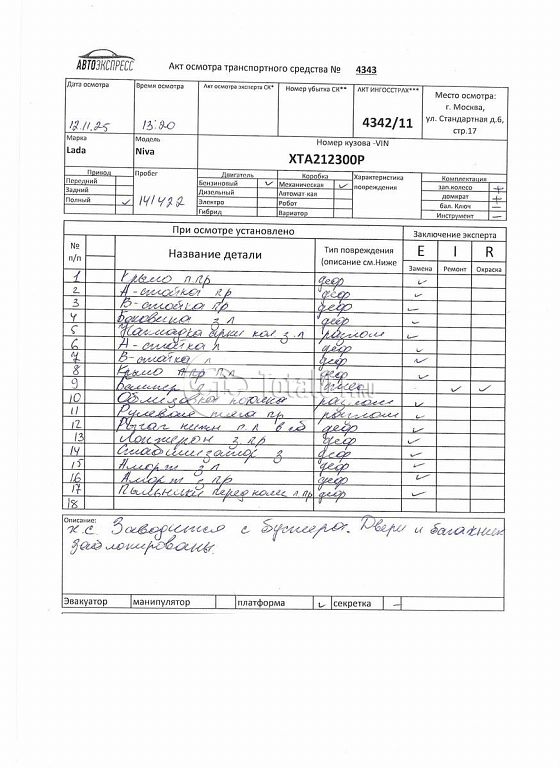 АВТОЭКСПРЕСС
Акт осмотра транспортного средства № 4343
Дата осмотра
12.11.25
Время осмотра
13:20
Акт осмотра эксперта СК*
Номер убытка СК**
АКТ ИНГОССТРАХ***
4342/11
Место осмотра:
г. Москва,
ул. Стандартная д.6,
стр.17
Марка
Lada
Модель
Niva
Номер кузова -VIN
XTA212300P
Привод
Передний
Задний
Полный ✓
Пробег
141422
Двигатель
Бензиновый ✓
Дизельный
Электро
Гибрид
Коробка
Механическая ✓
Автомат-кая
Робот
Вариатор
Характеристика
повреждения
Комплектация
зап.колесо +
домкрат +
бал. Ключ —
Инструмент —
При осмотре установлено
Заключение эксперта
№
п/п
Название детали
Тип повреждения
(описание см.Ниже
E I R
Замена Ремонт Окраска
1 Крыло п.пр деф ✓
2 А-стойка пр деф ✓
3 В-стойка пр деф ✓
4 Боковина з л деф ✓
5 Накладка арки кол з.л разлом ✓
6 А-стойка л деф ✓
7 В-стойка л деф ✓
8 Крыло деф ✓
9 Бампер ✓ ✓
10 разлом ✓
11 Рулевая тяга пр разлом ✓
12 Рычаг нижн п л в сб деф ✓
13 Лонжерон з.пр деф ✓
14 Стабилизатор з деф ✓
15 Аморт з л деф ✓
16 Аморт з пр деф ✓
17 Пыльники перед колес л пр деф ✓
18
Описание:
х.с. Заводится с бустера. Двери и багажник
заблокированы.
Эвакуатор манипулятор платформа ✓ секретка —